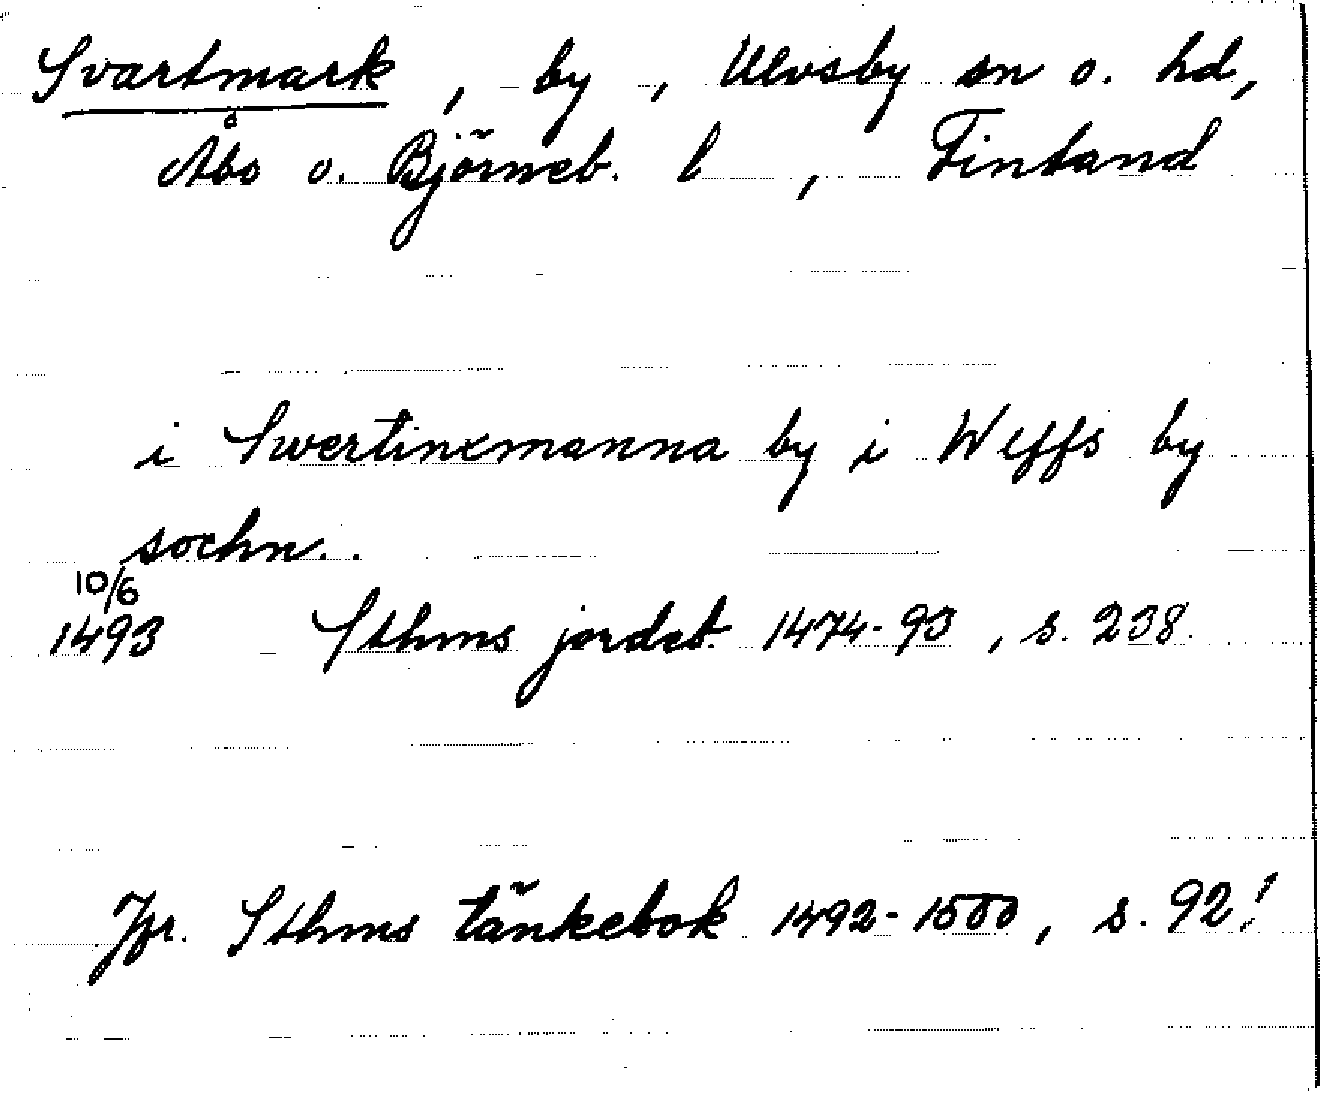 Svartmark, by, Ulvsby sn o. hd,
Åbo o. Björneb. l, Finland
i Swertinxmanna by i Wlffs by
sochn..
10/6
1493 Sthms jordeb. 1474-93, s. 238.
Jfr. Sthms tänkebok 1492-1500, s. 92!